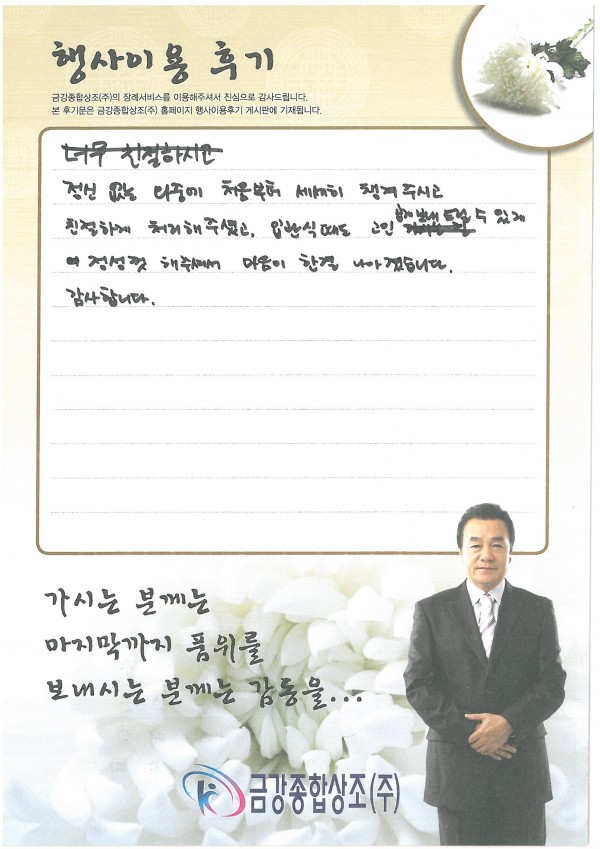 행사이용 후기
금강종합상조(주)의 장례서비스를 이용해주셔서 진심으로 감사드립니다.
본 후기문은 금강종합상조(주) 홈페이지 행사이용후기 게시판에 기재됩니다.
너무 친절하시고
정신 없는 와중에 처음부터 세세히 챙겨 주시고
친절하게 처리해 주셨고, 입관식 때도 고인 수 있게
더 정성껏 해주셔서 마음이 한결 나아졌습니다.
감사합니다.
가시는 분께는
마지막까지 품위를
보내시는 분께는 감동을...
금강종합상조(주)